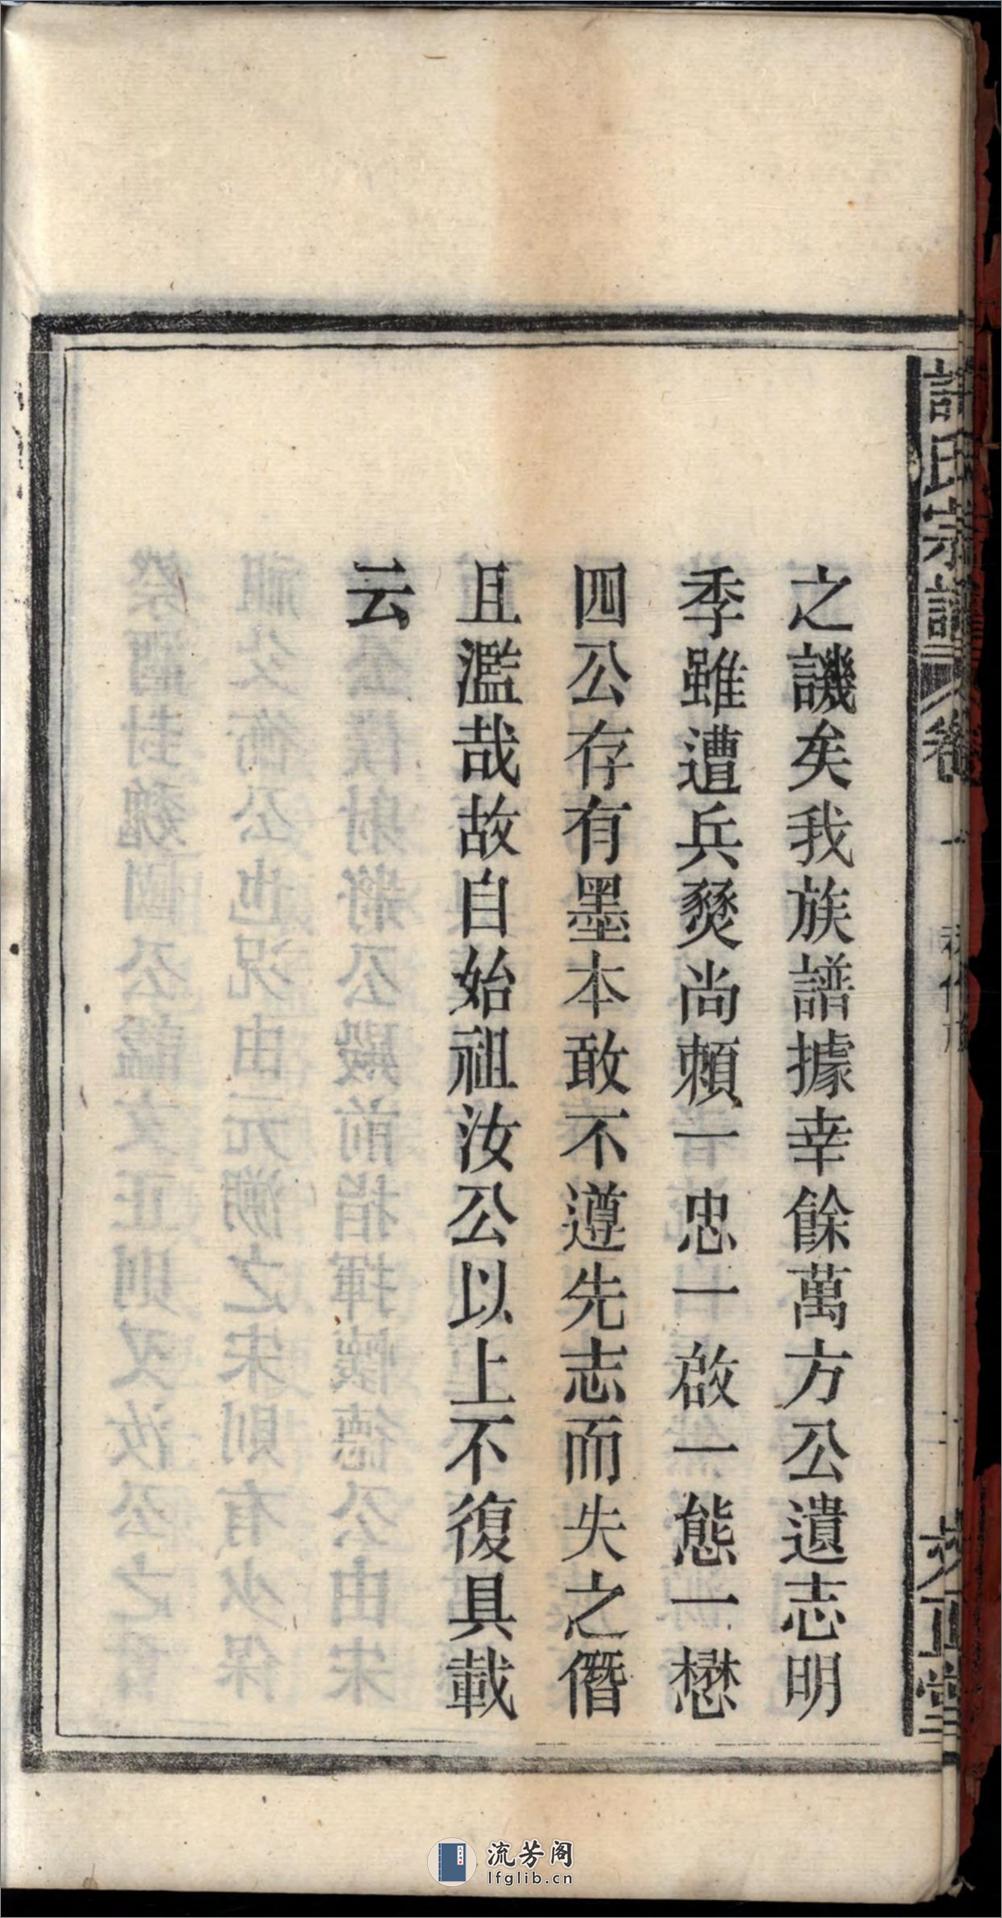 許氏宗譜 卷一
之譏矣我族譜據幸餘萬方公遺志明
季雖遭兵燹尚頼一忠一啟一態一懋
四公存有墨本敢不遵先志而失之僭
且濫哉故自始祖汝公以上不復具載
云
流芳阁
lfglib.cn